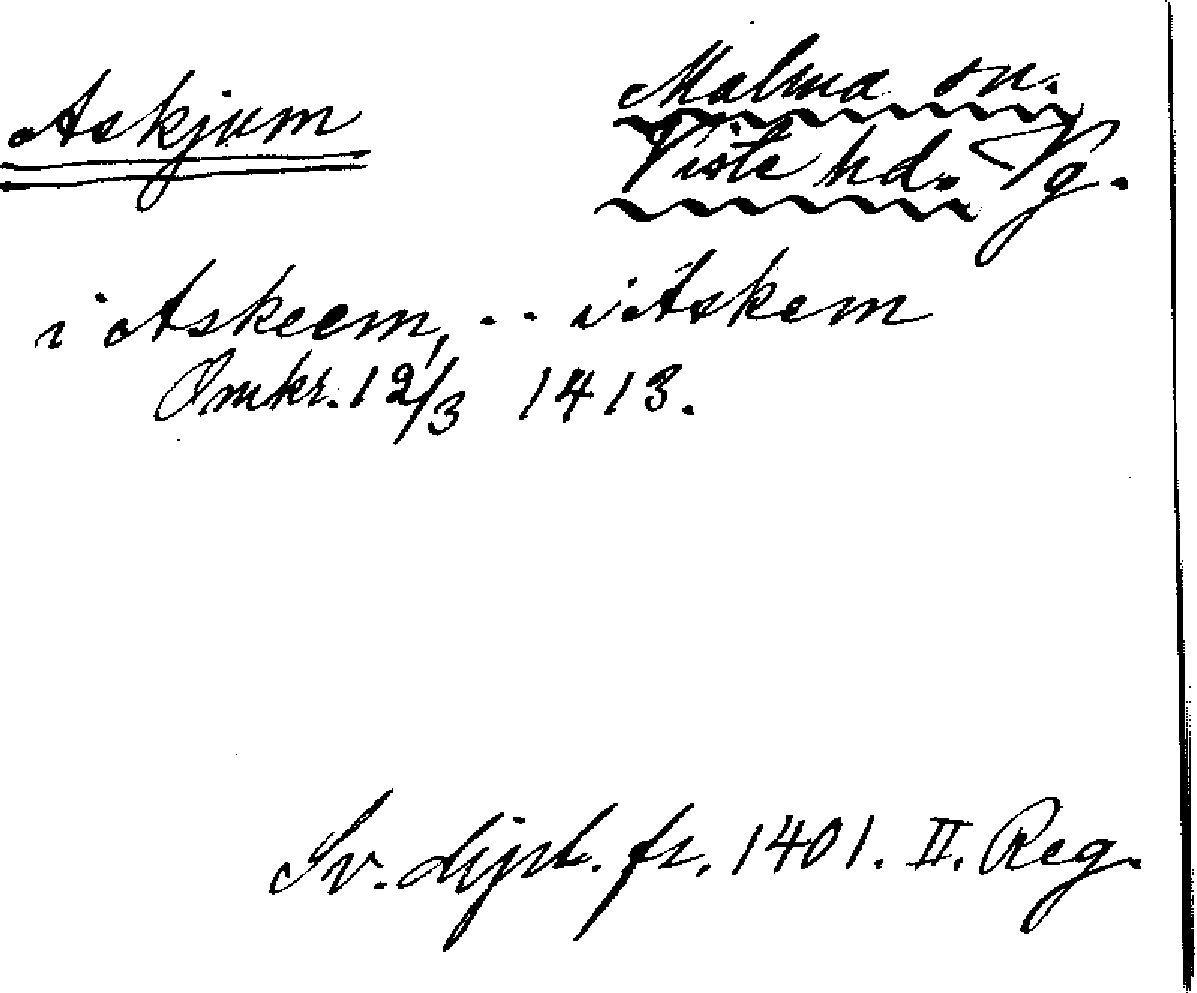 Askjum
Malma sn.
Viste hd. Vg.
i Askeem, . . i Askem
Omkr. 12/3 1413.
Sv. dipl. fr. 1401. II. Reg.